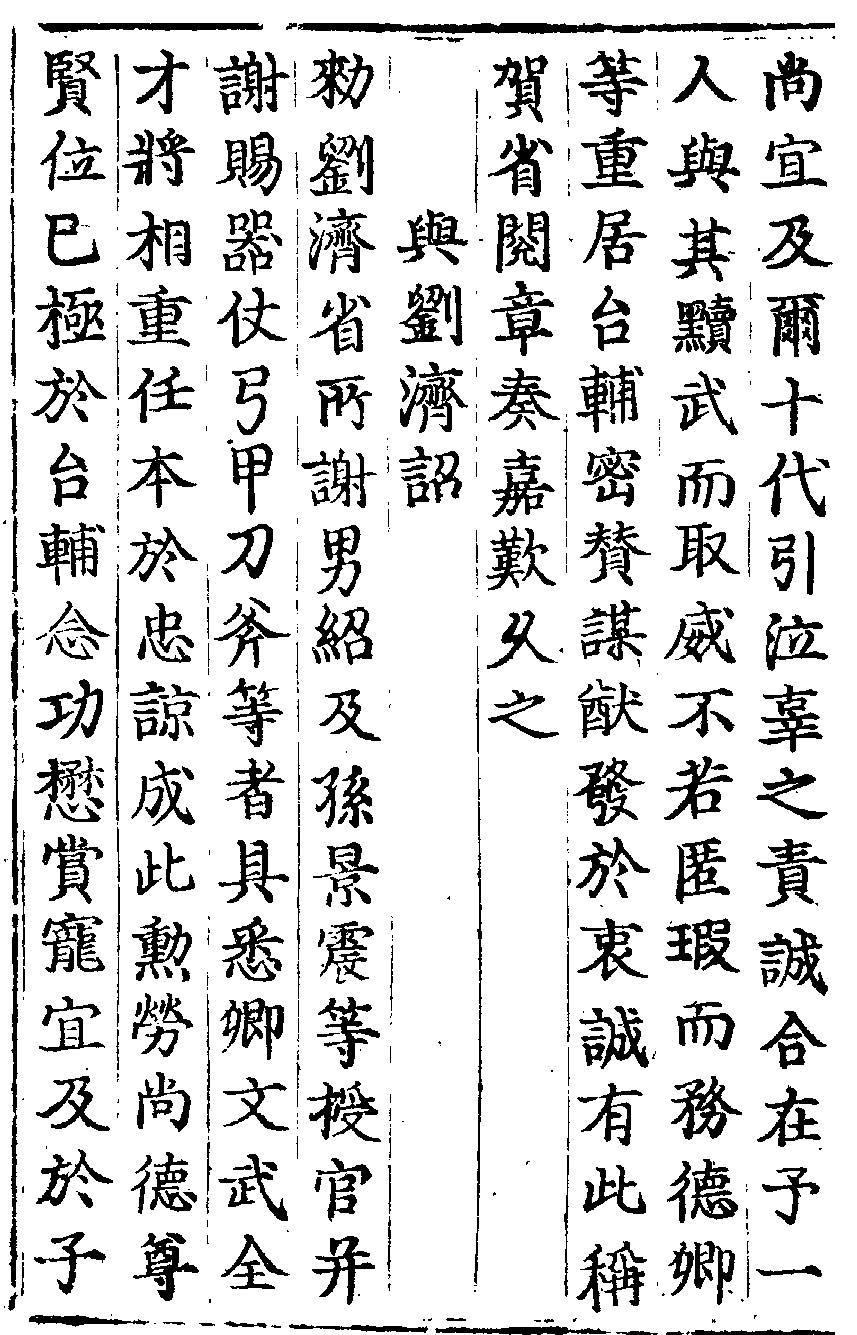 尚宜及爾十代引泣辜之責誠合在予一
人與其黷武而取威不若匿瑕而務德卿
等重居台輔密賛謀猷發於衷誠有此稱
賀省閱章奏嘉歎久之
與劉濟詔
勑劉濟省所謝男緄及孫景震等授官并
謝賜器仗弓甲刀斧等者具悉卿文武全
才將相重任本於忠諒成此勲勞尚德尊
賢位已極於台輔念功懋賞寵宜及於子